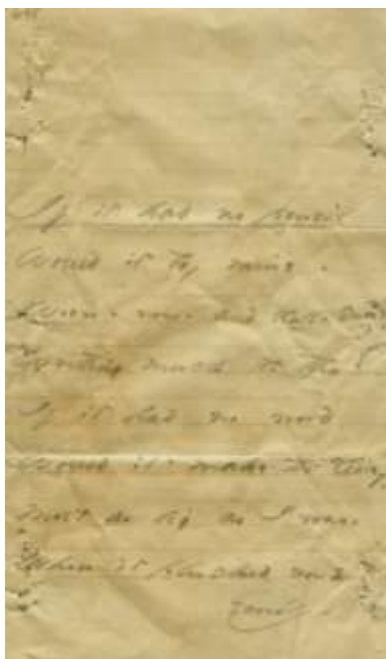 If it had no pencil
Would it try mine -
Worn - now - and dull - sweet,
Writing much to thee.
If it had no word
Would it make the Daisy,
Most as big as I was
When it plucked me
Emily